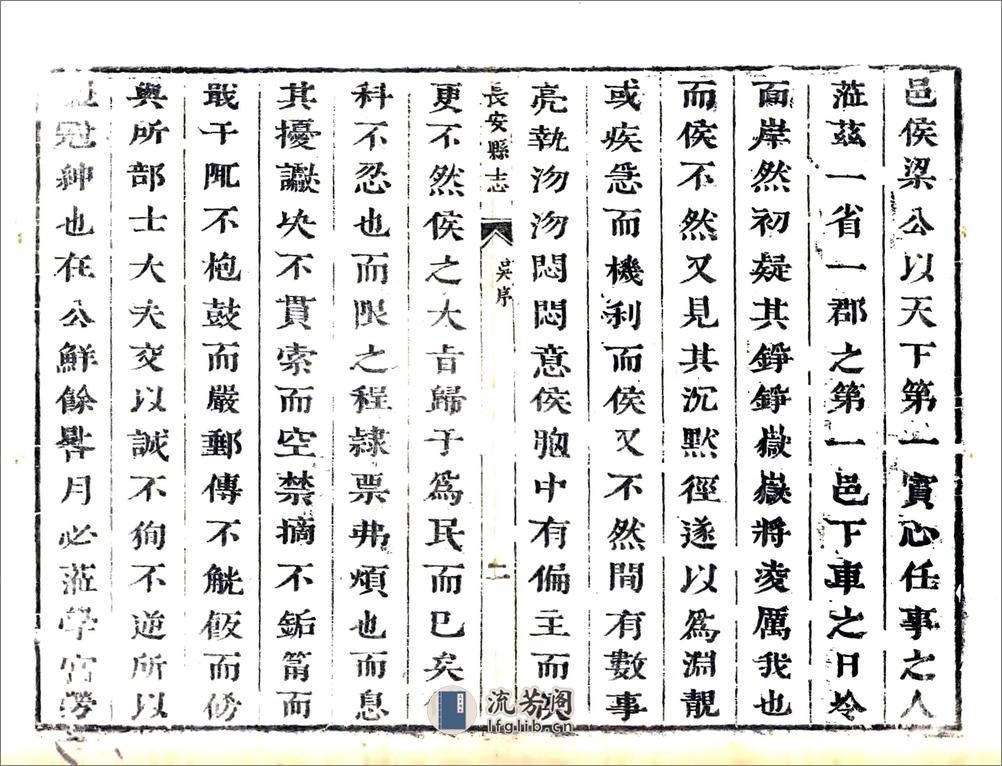 邑侯梁公以天下第一實心任事之人
蒞茲一省一郡之第一邑下車之日冷
面岸然初疑其錚錚嶽嶽將凌厲我也
而侯不然又見其沉默徑遂以為淵靚
或疾怠而機利而侯又不然間有數事
亮執沕沕悶悶意侯胸中有偏主而
長安縣志
吳序
更不然侯之大㫖歸于為民而已矣
科不忍也而限之程隸票弗煩也而息
其擾讞決不貫索而空禁摘不鉐筩而
戢干陬不枹鼓而嚴郵傳不觥飯而傍
與所部士大夫交以誠不徇不逆所以
冠紳也在公鮮餘晷月必蒞學宮
流芳阁
lfglib.cn